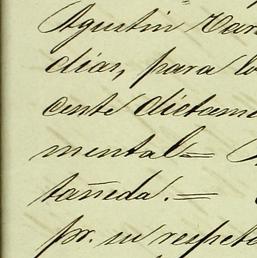 Agustin
dias, para lo
cente dictame
mental=
tañeda.=
pr. su respeto